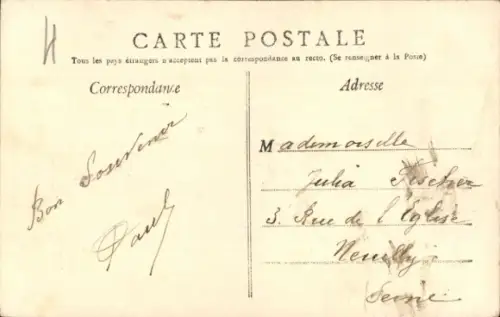 H
CARTE POSTALE
Tous les pays étrangers n'acceptent pas la correspondance au recto. (Se renseigner à la Poste)
Correspondance
Adresse
Bon Souvenir
Paul
Mademoiselle
Julia Fischer
3. Rue de l'Église
Neuilly
Seine